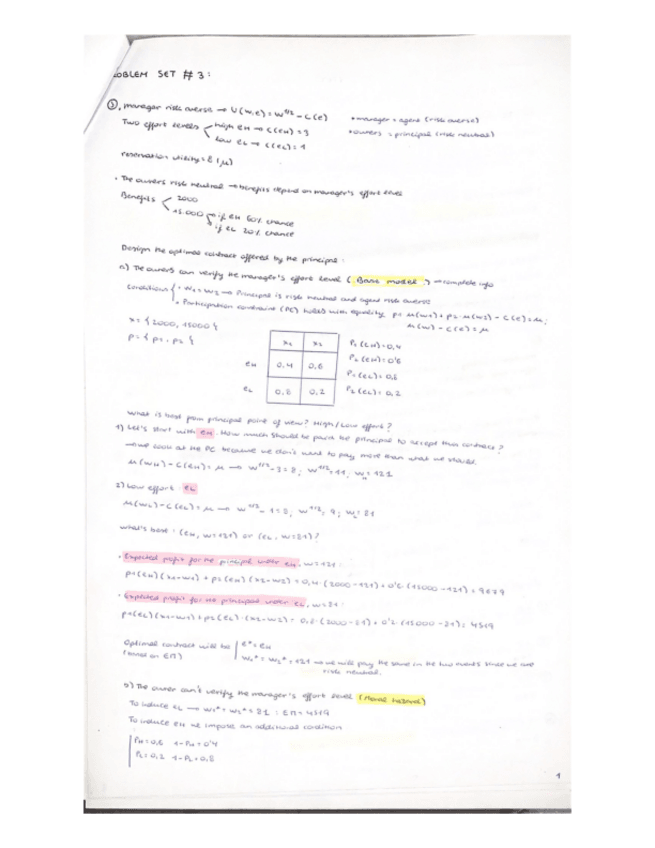 OBLEM SET #3:
③, manager risk averse → U(w,e) = w^1/2 - c(e)
• manager = agent (risk averse)
Two effort levels high eH → c(eH) = 3
low eL → c(eL) = 1
• owners = principal (risk neutral)
reservation utility = 8 (μ)
• The owners risk neutral → benefits depend on manager's effort level
Benefits 2000
15.000 → if eH 60% chance
if eL 20% chance
Design the optimal contract offered by the principal:
a) The owners can verify the manager's effort level (Base model) → complete info
Conditions { • w1 = w2 → Principal is risk neutral and agent risk averse
• Participation constraint (PC) holds with equality p1·μ(w1) + p2·μ(w2) - c(e) = μ;
μ(w) - c(e) = μ
x = {2000, 15000}
p = {p1, p2}
x1 x2
eH 0,4 0,6
eL 0,8 0,2
P1(eH) = 0,4
P2(eH) = 0'6
P1(eL) = 0,8
P2(eL) = 0,2
What is best from principal point of view? High/Low effort?
1) Let's start with eH. How much should be paid the principal to accept this contract?
→ we look at the PC because we don't want to pay more than what we should.
μ(wH) - c(eH) = μ → w^1/2 - 3 = 8; w^1/2 = 11; w = 121
2) Low effort: eL
μ(wL) - c(eL) = μ → w^1/2 - 1 = 8; w^1/2 = 9; w = 81
what's best: (eH, w=121) or (eL, w=81)?
• Expected profit for the principal under eH, w=121:
p1(eH)(x1-w1) + p2(eH)(x2-w2) = 0,4·(2000-121) + 0'6·(15000-121) = 9679
• Expected profit for the principal under eL, w=81:
p1(eL)(x1-w1) + p2(eL)·(x2-w2) = 0,8·(2000-81) + 0'2·(15000-81) = 4519
Optimal contract will be | e* = eH
(based on EΠ) | w1* = w2* = 121 → we will pay the same in the two events since we are
risk neutral.
b) The owner can't verify the manager's effort level (Moral hazard)
To induce eL → w1* = w2* = 81 : EΠ = 4519
To induce eH we impose an additional condition
PH = 0,6 1-PH = 0'4
PL = 0,2 1-PL = 0,8
1